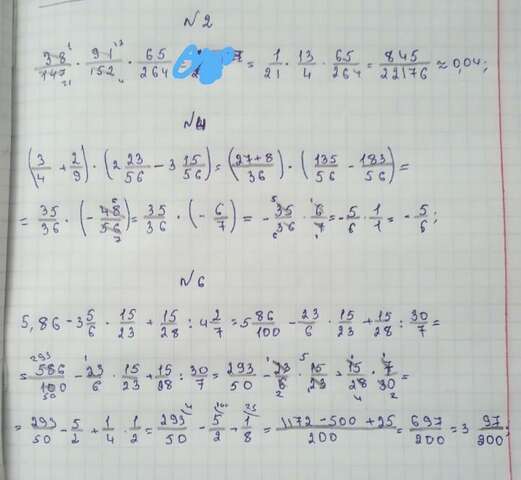 №2
38/147 · 91/152 · 65/264 = 1/21 · 13/4 · 65/264 = 845/22176 ≈ 0,04;
№4
(3/4 + 2/9) · (2 23/56 − 3 15/56) = (27+8/36) · (135/56 − 183/56) =
= 35/36 · (− 48/56) = 35/36 · (− 6/7) = − 35/36 · 6/7 = − 5/6 · 1/1 = − 5/6;
№6
5,86 − 3 5/6 · 15/23 + 15/28 : 4 2/7 = 5 86/100 − 23/6 · 15/23 + 15/28 : 30/7 =
= 586/100 − 23/6 · 15/23 + 15/28 : 30/7 = 293/50 − 23/6 · 15/23 + 15/28 · 7/30 =
= 293/50 − 5/2 + 1/4 · 1/2 = 293/50 − 5/2 + 1/8 = 1172 − 500 + 25/200 = 697/200 = 3 97/200;